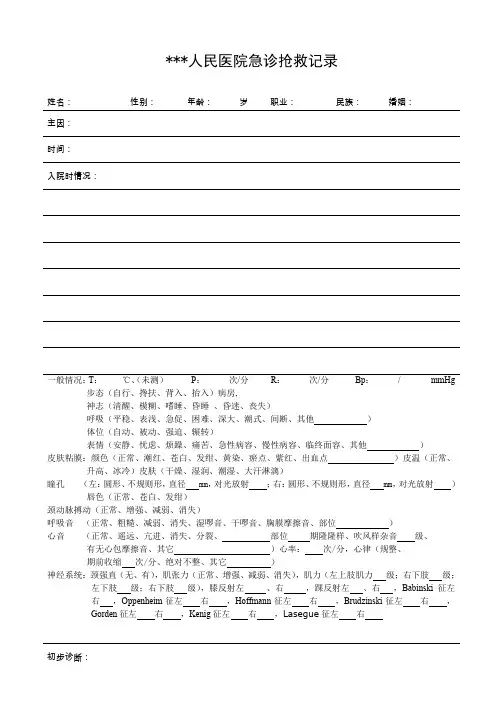 ***人民医院急诊抢救记录
姓名： 性别： 年龄： 岁 职业： 民族： 婚姻：
主因：
时间：
入院时情况：
一般情况：T： ℃、（未测） P： 次/分 R： 次/分 Bp： / mmHg
步态（自行、搀扶、背入、抬入）病房.
神志（清醒、模糊、嗜睡、昏睡 、昏迷、丧失）
呼吸（平稳、表浅、急促、困难、深大、潮式、间断、其他 ）
体位（自动、被动、强迫、辗转）
表情（安静、忧虑、烦躁、痛苦、急性病容、慢性病容、临终面容、其他 ）
皮肤粘膜：颜色（正常、潮红、苍白、发绀、黄染、瘀点、紫红、出血点 ）皮温（正常、
升高、冰冷）皮肤（干燥、湿润、潮湿、大汗淋漓）
瞳孔 （左：圆形、不规则形，直径 mm，对光放射 ；右：圆形、不规则形，直径 mm，对光放射 ）
唇色（正常、苍白、发绀）
颈动脉搏动（正常、增强、减弱、消失）
呼吸音 （正常、粗糙、减弱、消失、湿啰音、干啰音、胸膜摩擦音、部位 ）
心音 （正常、遥远、亢进、消失、分裂、 部位 期隆隆样、吹风样杂音 级、
有无心包摩擦音、其它 ）心率： 次/分，心律（规整、
期前收缩 次/分、绝对不整、其它 ）
神经系统：颈强直（无、有），肌张力（正常、增强、减弱、消失），肌力（左上肢肌力 级；右下肢 级；
左下肢 级；右下肢 级），膝反射左 、右 ，踝反射左 、右 ，Babinski 征左
右 ，Oppenheim 征左 右 ，Hoffmann 征左 右 ，Brudzinski 征左 右 ，
Gorden 征左 右 ，Kenig 征左 右 ，Lasegue 征左 右
初步诊断：